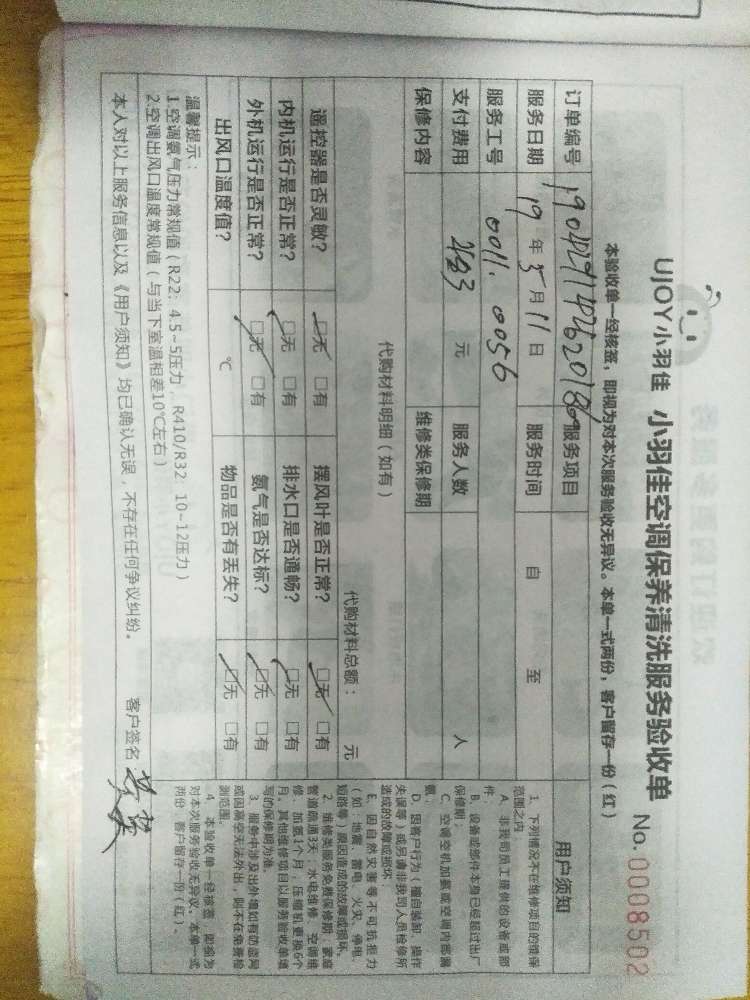 UJOY小羽佳 小羽佳空调保养清洗服务验收单 No. 0008502
本验收单一经核签，即视为对本次服务验收无异议。本单一式两份，客户留存一份（红）
订单编号 服务项目
服务日期 19 年 5 月 11 日 服务时间 自 至
服务工号 0011. 0056
支付费用 元 服务人数 人
保修内容 维修类保修期
代购材料明细（如有）
代购材料总额： 元
遥控器是否灵敏？ □无 □有 摆风叶是否正常？ □无 □有
内机运行是否正常？ □无 □有 排水口是否通畅？ □无 □有
外机运行是否正常？ □无 □有 氨气是否达标？ □无 □有
出风口温度值？ ℃ 物品是否有丢失？ □无 □有
温馨提示：
1.空调氨气压力常规值（R22：4.5~5压力，R410/R32：10~12压力）
2.空调出风口温度常规值（与当下室温相差10℃左右）
本人对以上服务信息以及《用户须知》均已确认无误，不存在任何争议纠纷。 客户签名
用户须知
1、下列情况不在维修项目的维保
范围之内：
A、非我司员工提供的设备或部
件
B、设备或部件本身已经超过出厂
保修期；
C、空调空机加氨或空调内部漏
氨；
D、因客户行为（擅自装卸、操作
失误等）或另请非我司人员检修所
造成的故障或损坏；
E、因自然灾害等不可抗拒力
（如：地震、雷电、火灾、停电、
短路等）原因造成的故障或损坏。
2、维修类服务免费保修期：家庭
管道疏通3天；水电维修、空调维
修、加氨1个月；压缩机更换6个
月。其他维修项目以服务验收单填
写的保修期为准。
3、服务中涉及出外墙如有防盗网
或因高空无法外出，则不在免费检
测范围。
4、本验收单一经核签，即视为
对本次服务验收无异议。本单一式
两份，客户留存一份（红）。